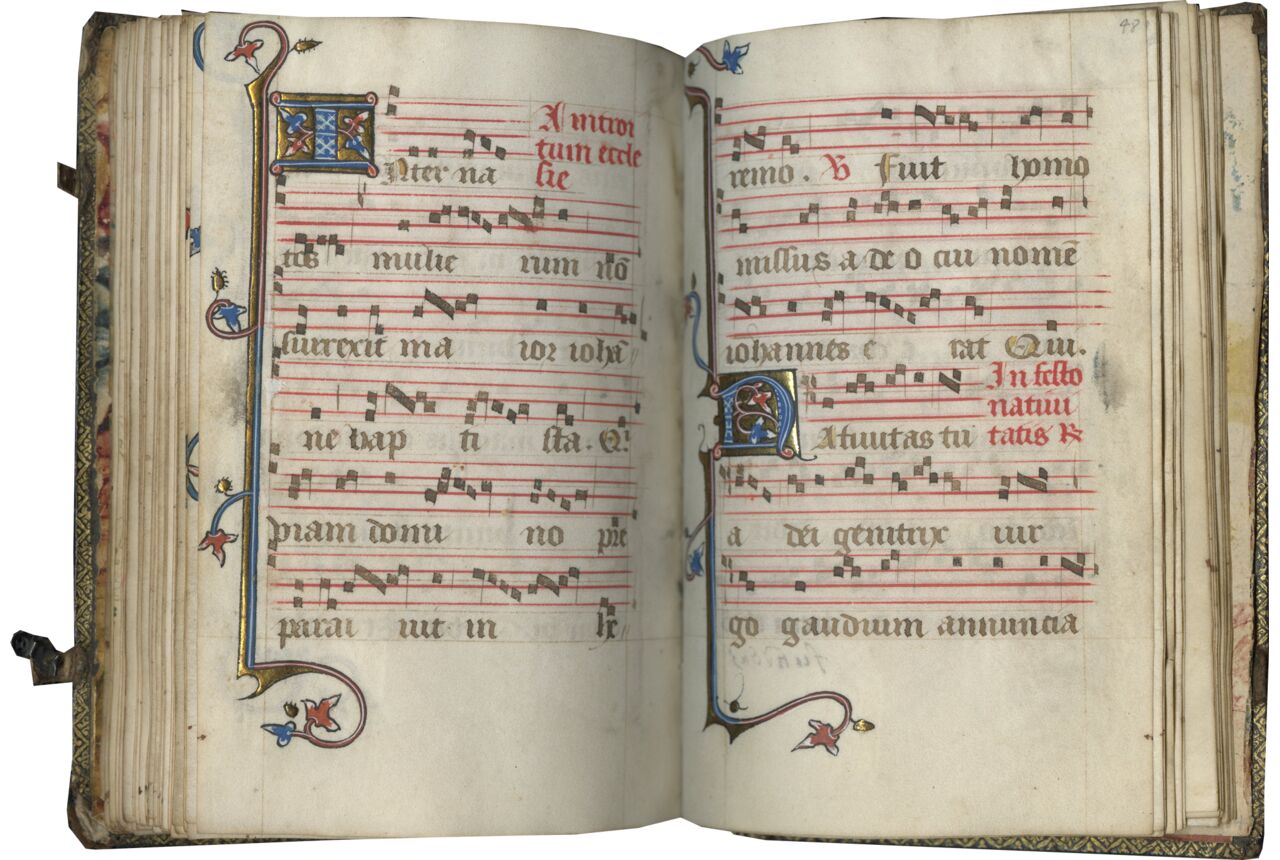 Inter na
A introi
tum eccle
sie
tos mulie rum nō
surrexit ma ior iohā
ne bap ti sta. Q!
viam domi no pre
parau uit in he
48
remo. V Fuit homo
missus a de o cui nomē
iohannes e rat Qui.
In festo
natiui
tatis R
Natiuitas tu
a dei genitrix uir
go gaudium annuncia